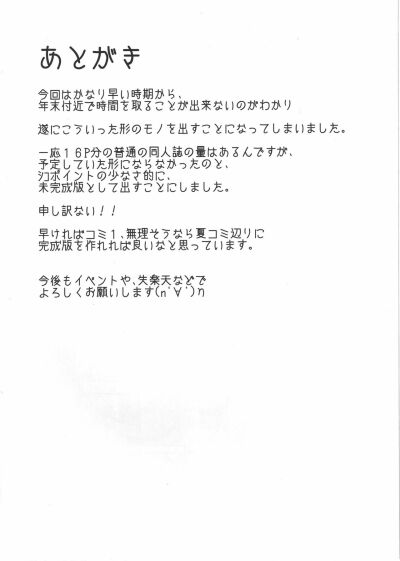 あとがき
今回はかなり早い時期から、
年末付近で時間を取ることが出来ないのがわかり
遂にこういった形のモノを出すことになってしまいました。
一応16P分の普通の同人誌の量はあるんですが、
予定していた形にならなかったのと、
ｼｺポイントの少なさ的に、
未完成版として出すことにしました。
申し訳ない！！
早ければコミ1、無理そうなら夏コミ辺りに
完成版を作れれば良いなと思っています。
今後もイベントや、失楽天などで
よろしくお願いします(n'∀')η